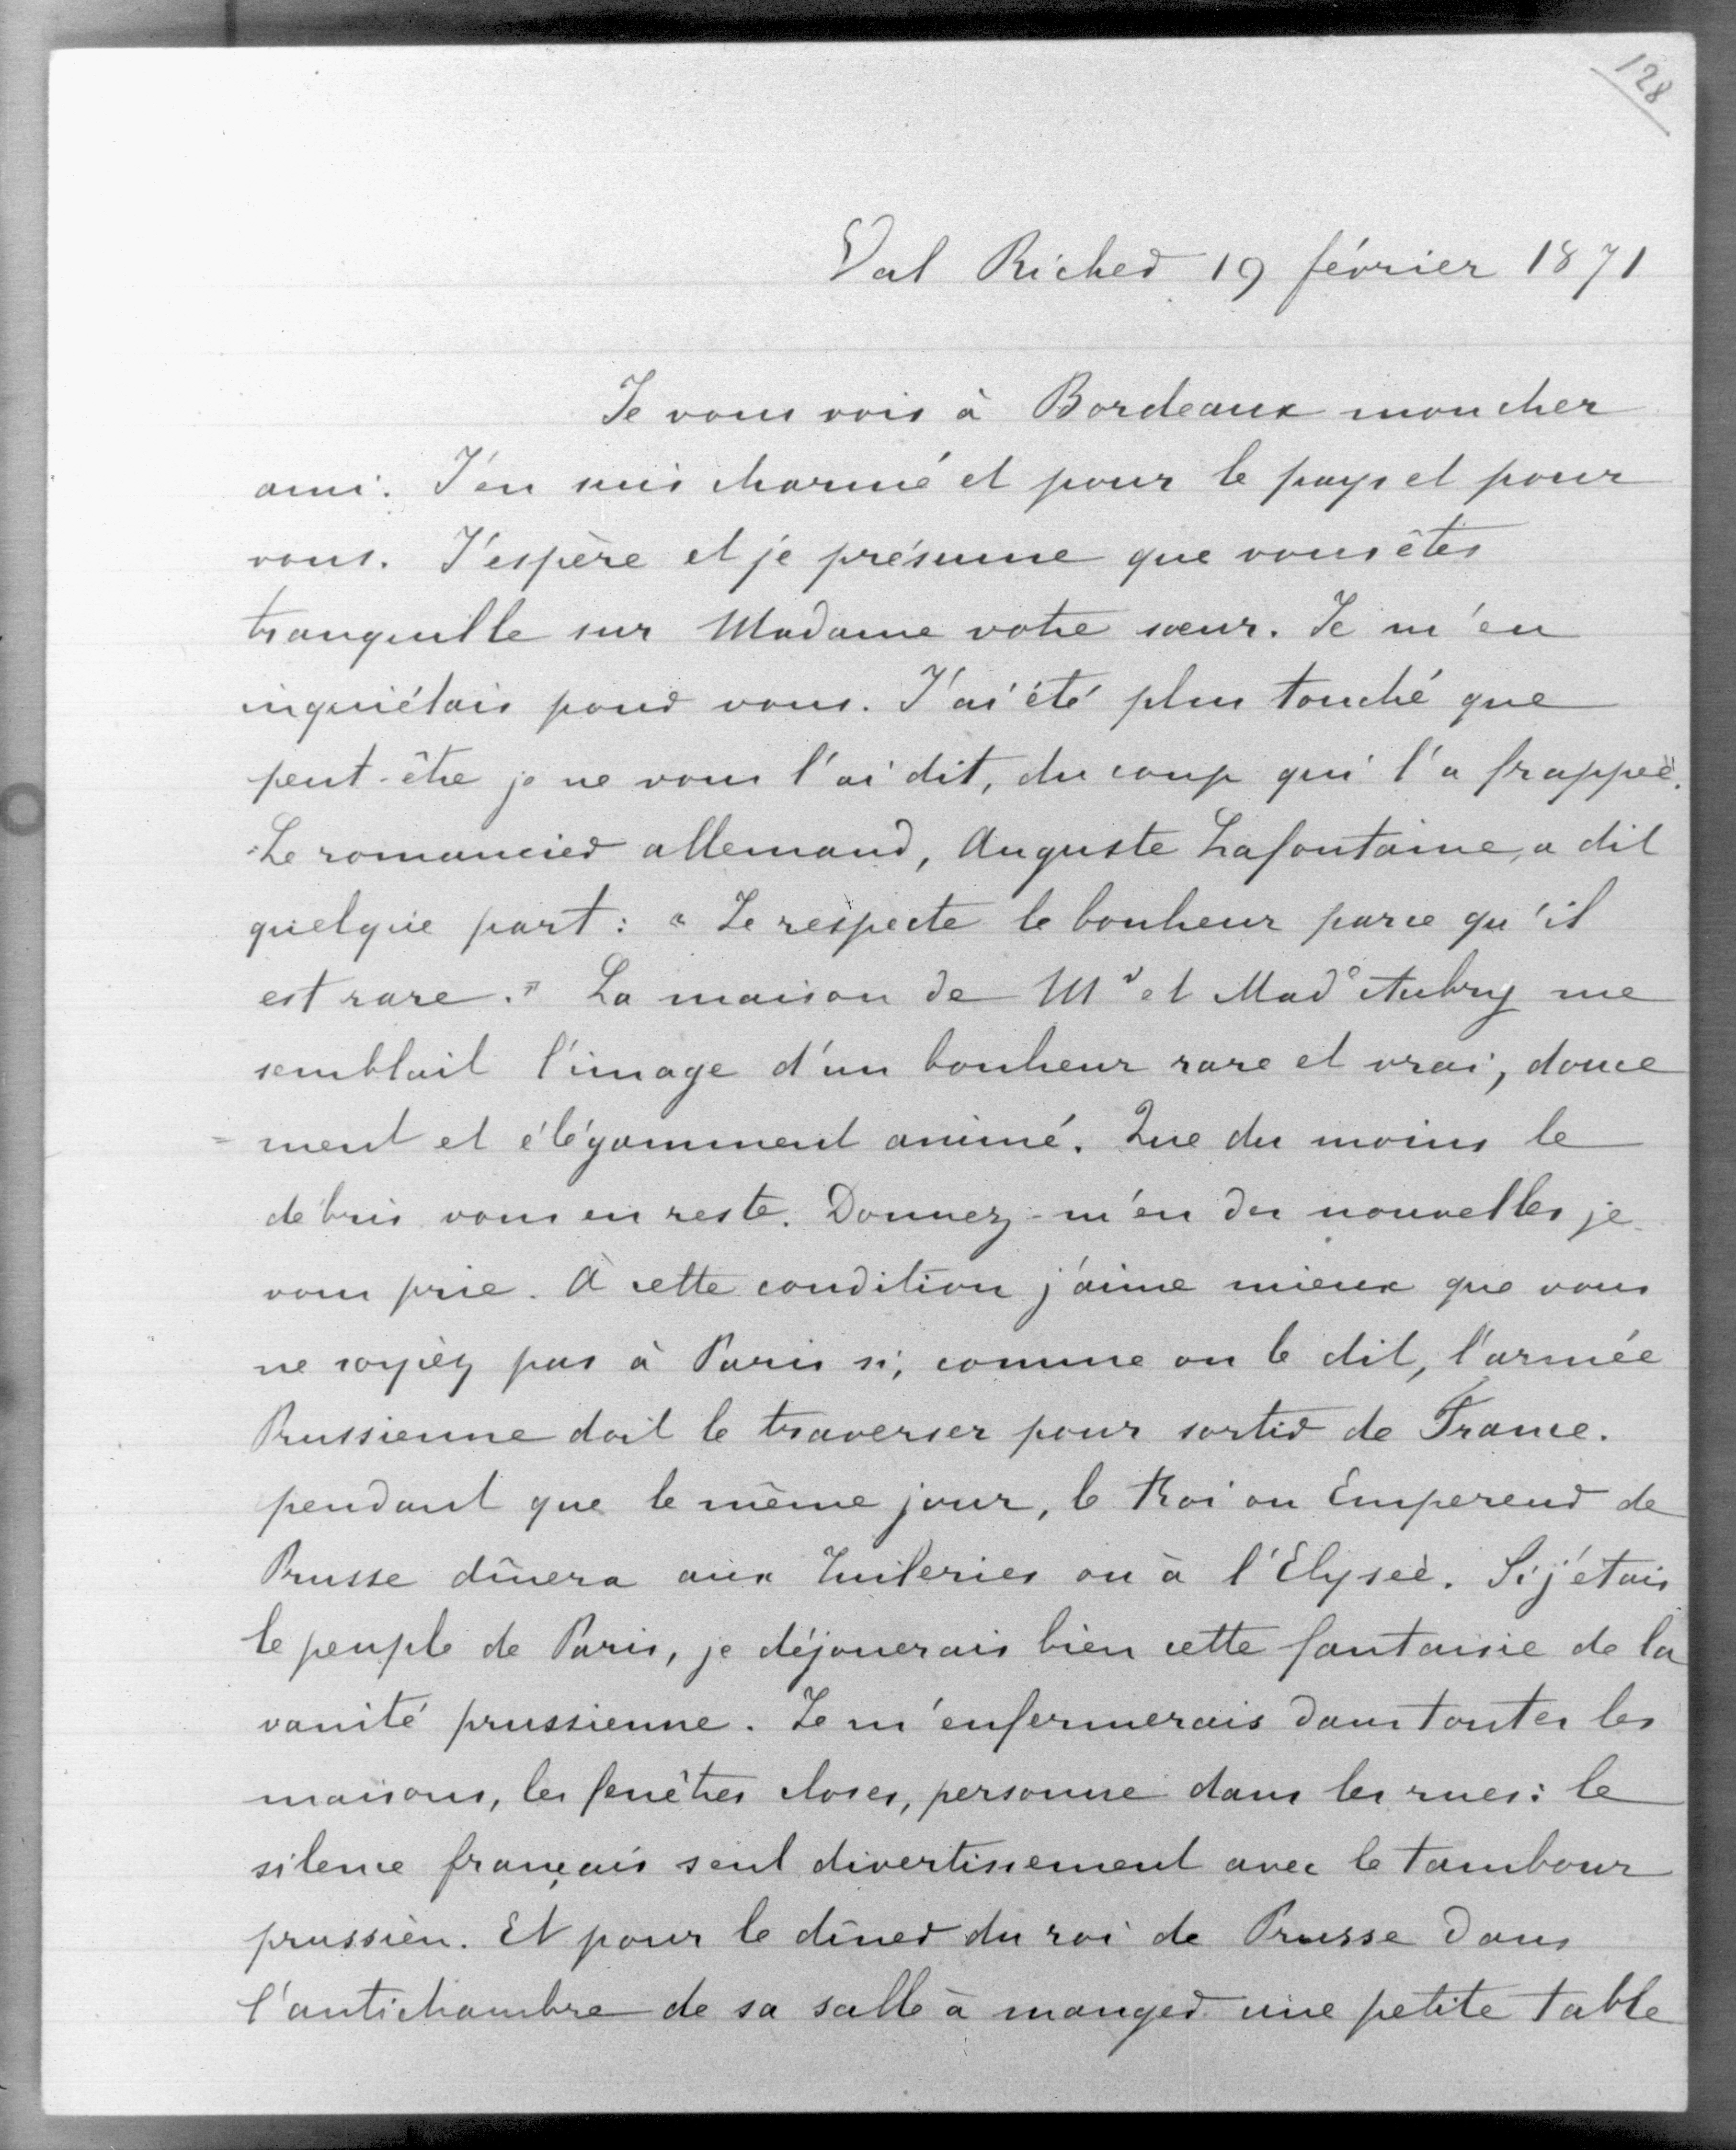 128
Val Richer 19 février 1871
Je vous vois à Bordeaux mon cher
ami. J'en suis charmé et pour le pays et pour
vous. J'espère et je présume que vous êtes
tranquille sur Madame votre sœur. Je m'en
inquiétais pour vous. J'ai été plus touché que
peut-être je ne vous l'ai dit, du coup qui l'a frappée.
Le romancier allemand, Auguste Lafontaine, a dit
quelque part : " Je respecte le bonheur parce qu'il
est rare. " La maison de Mr et Made Aubry me
semblait l'image d'un bonheur rare et vrai, douce
=ment et élégamment animé. Que du moins le
débris vous en reste. Donnez-m'en des nouvelles je
vous prie. À cette condition j'aime mieux que vous
ne soyiez pas à Paris si, comme on le dit, l'armée
Prussienne doit le traverser pour sortir de France.
pendant que le même jour, le Roi ou Empereur de
Prusse dînera aux Tuileries ou à l'Elysée. Si j'étais
le peuple de Paris, je déjouerais bien cette fantaisie de la
vanité prussienne. Je m'enfermerais dans toutes les
maisons, les fenêtres closes, personne dans les rues : le
silence français seul divertissement avec le tambour
prussien. Et pour le dîner du roi de Prusse dans
l'antichambre de sa salle à manger une petite table